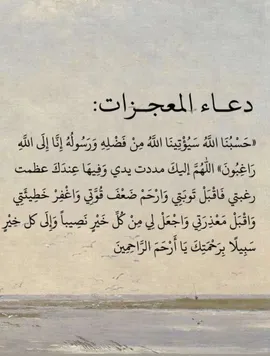 دعـاء المعجـزات:
«حَسْبُنَا اللَّهُ سَيُؤْتِينَا اللَّهُ مِنْ فَضْلِهِ وَرَسُولُهُ إِنَّا إِلَى اللَّهِ
رَاغِبُونَ» اللَّهُمَّ إليكَ مددت يدي وَفِيهَا عِندَكَ عظمت
رغبتي فَاقْبَلْ تَوبَتِي وَارْحَمْ ضَعْفَ قُوَّتِي وَاغْفِرْ خَطِيئَتِي
وَاقْبَلْ مَعْذِرَتِي وَاجْعَلْ لِي مِنْ كُلِّ خَيْرٍ نَصِيباً وَإِلَى كل خيْرٍ
سَبِيلًا بِرَحْمَتِكَ يَا أَرْحَمَ الرَّاحِمِينَ